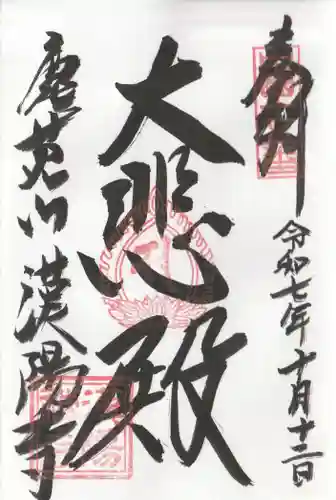 奉拝
令和七年十月十二日
大悲殿
鹿苑山 漢陽寺